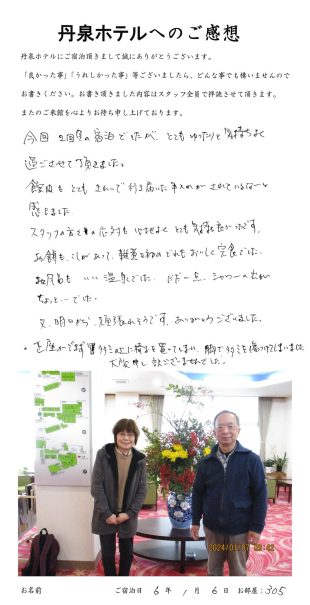 丹泉ホテルへのご感想
丹泉ホテルにご宿泊頂きまして誠にありがとうございます。
「良かった事」「うれしかった事」等ございましたら、どんな事でも構いませんので
お書きください。お書き頂きました内容はスタッフ全員で拝読させて頂きます。
またのご来館を心よりお待ち申し上げております。
今回 2回目の宿泊でしたが、とてもゆったりと気持ちよく
過ごさせて頂きました。
館内も とても きれいで 行き届いた 手入れが されているなーと
感じました。
スタッフの方々の応対も 心地よく とても 気持ち良かったです。
お料理も 心があって、 どれも おいしく 完食でした。
お風呂も いい 温泉でした。 ただ一点、シャワーの
ちょっと…でした。
又、明日から 頑張れそうです。ありがとうございました。
タタミの上に 置いてしまい、 タタミを傷つけてしまいました
大変申し訳ございませんでした。
2024/01/07
お名前 ご宿泊日 6年 1月 6日 お部屋:305